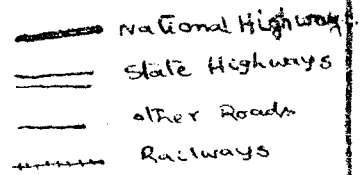 National Highways
State Highways
other Roads
Railways